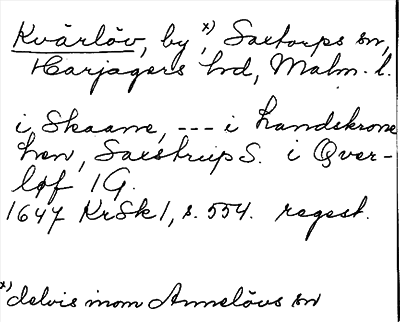 Kvärlöv, by x), Saxtorps sn,
Harjagers hd, Malm. l.
i Skaane, --- i Landskrone
Len, Saxstrup S. i Qver-
løf 1 G.
1647 KrSk 1, s. 554. regest.
x) delvis inom Annelövs sn